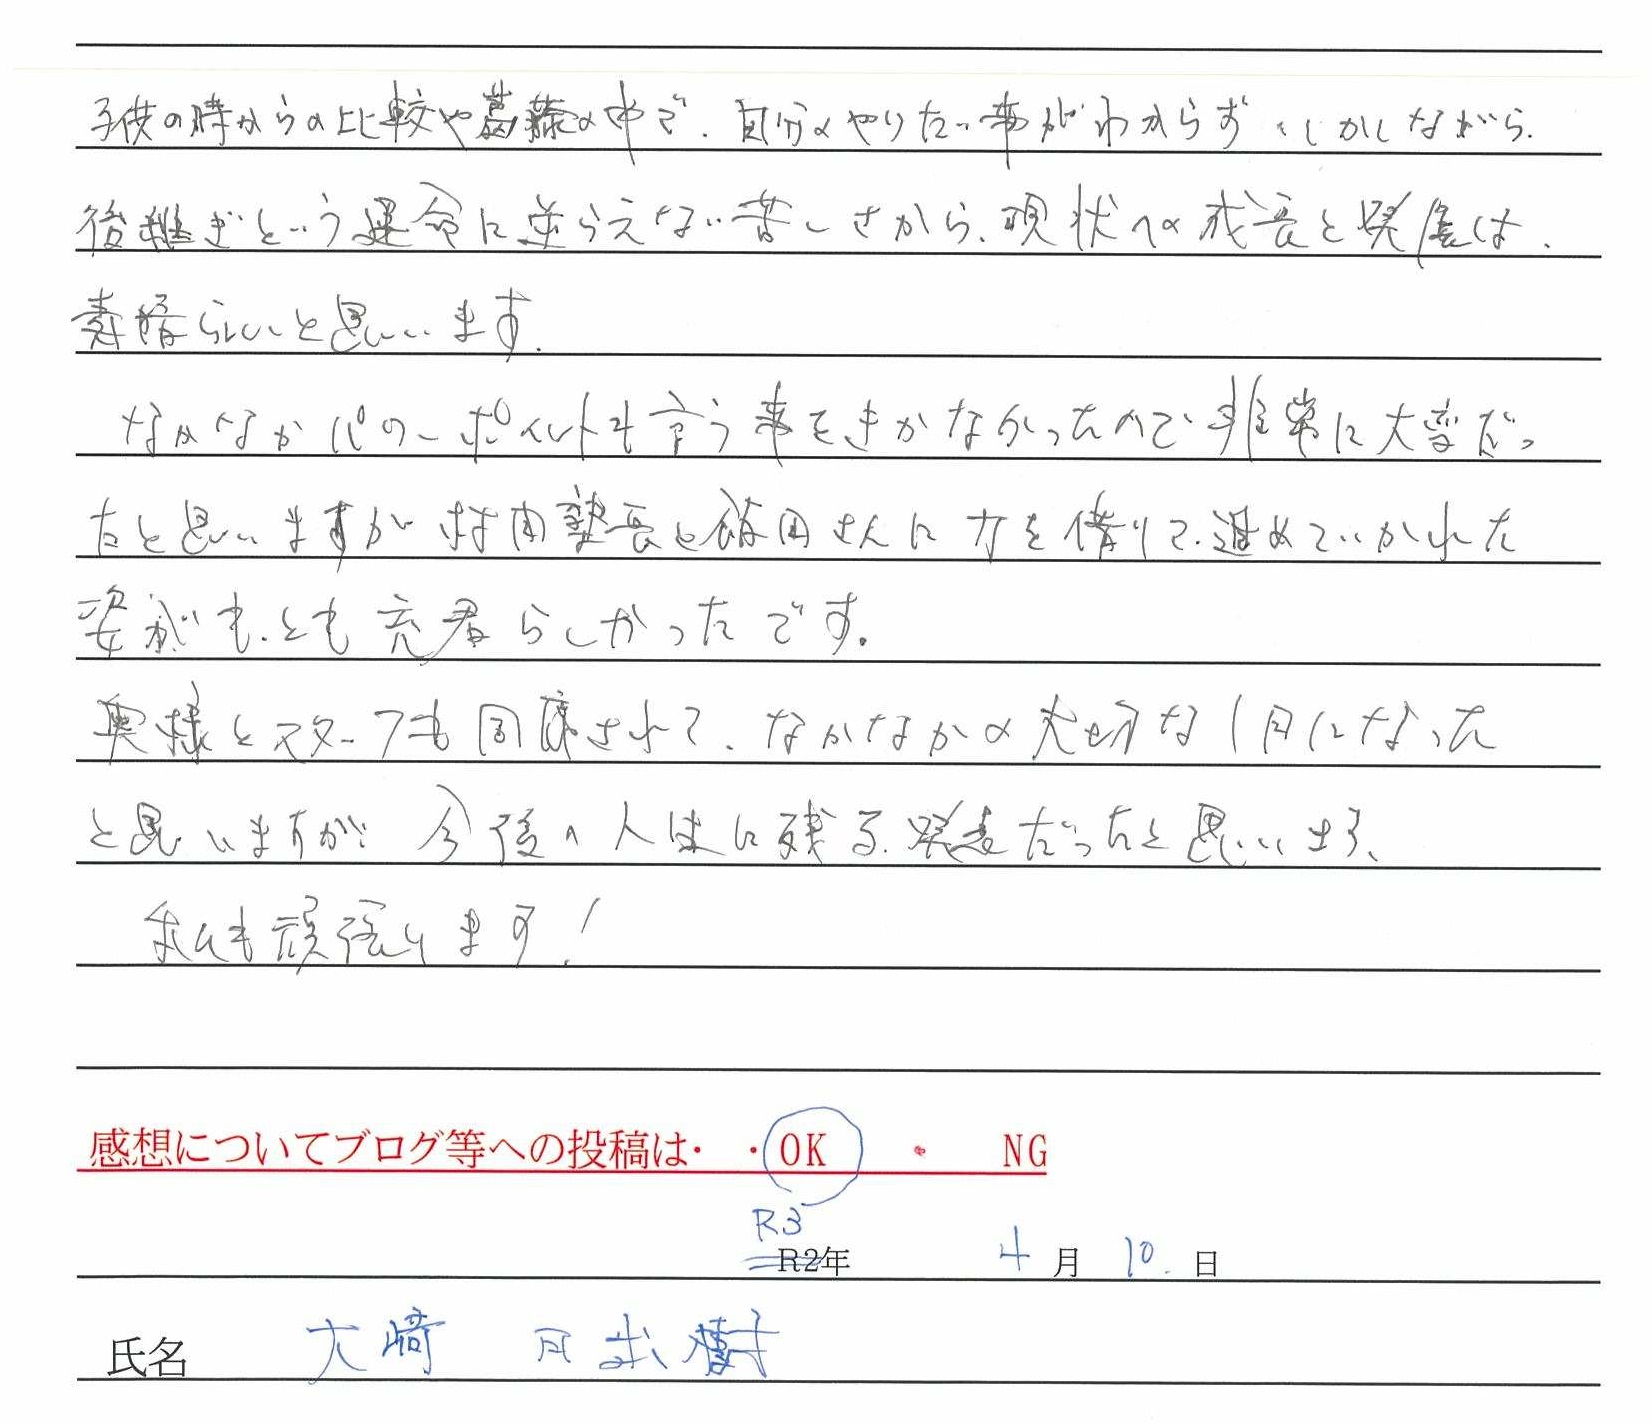 子供の時からの比較や葛藤の中で、自分のやりたい事がわからず、しかしながら、
後継ぎという運命に逆らえない苦しさから、現状への成長と発展は、
素晴らしいと思います。
なかなかパワーポイントも言う事をきかなかったので非常に大変だっ
たと思いますが村田塾長と飯田さんに力を借りて、進めていかれた
姿がも、とも充君らしかったです。
奥様とスタッフも同席されて、なかなかの大切な1日になった
と思いますが、今後の人生に残る発表だったと思います、
私も頑張ります!
感想についてブログ等への投稿は・・OK ・ NG
R3
R2年 4月 10.日
氏名 大崎 日出樹